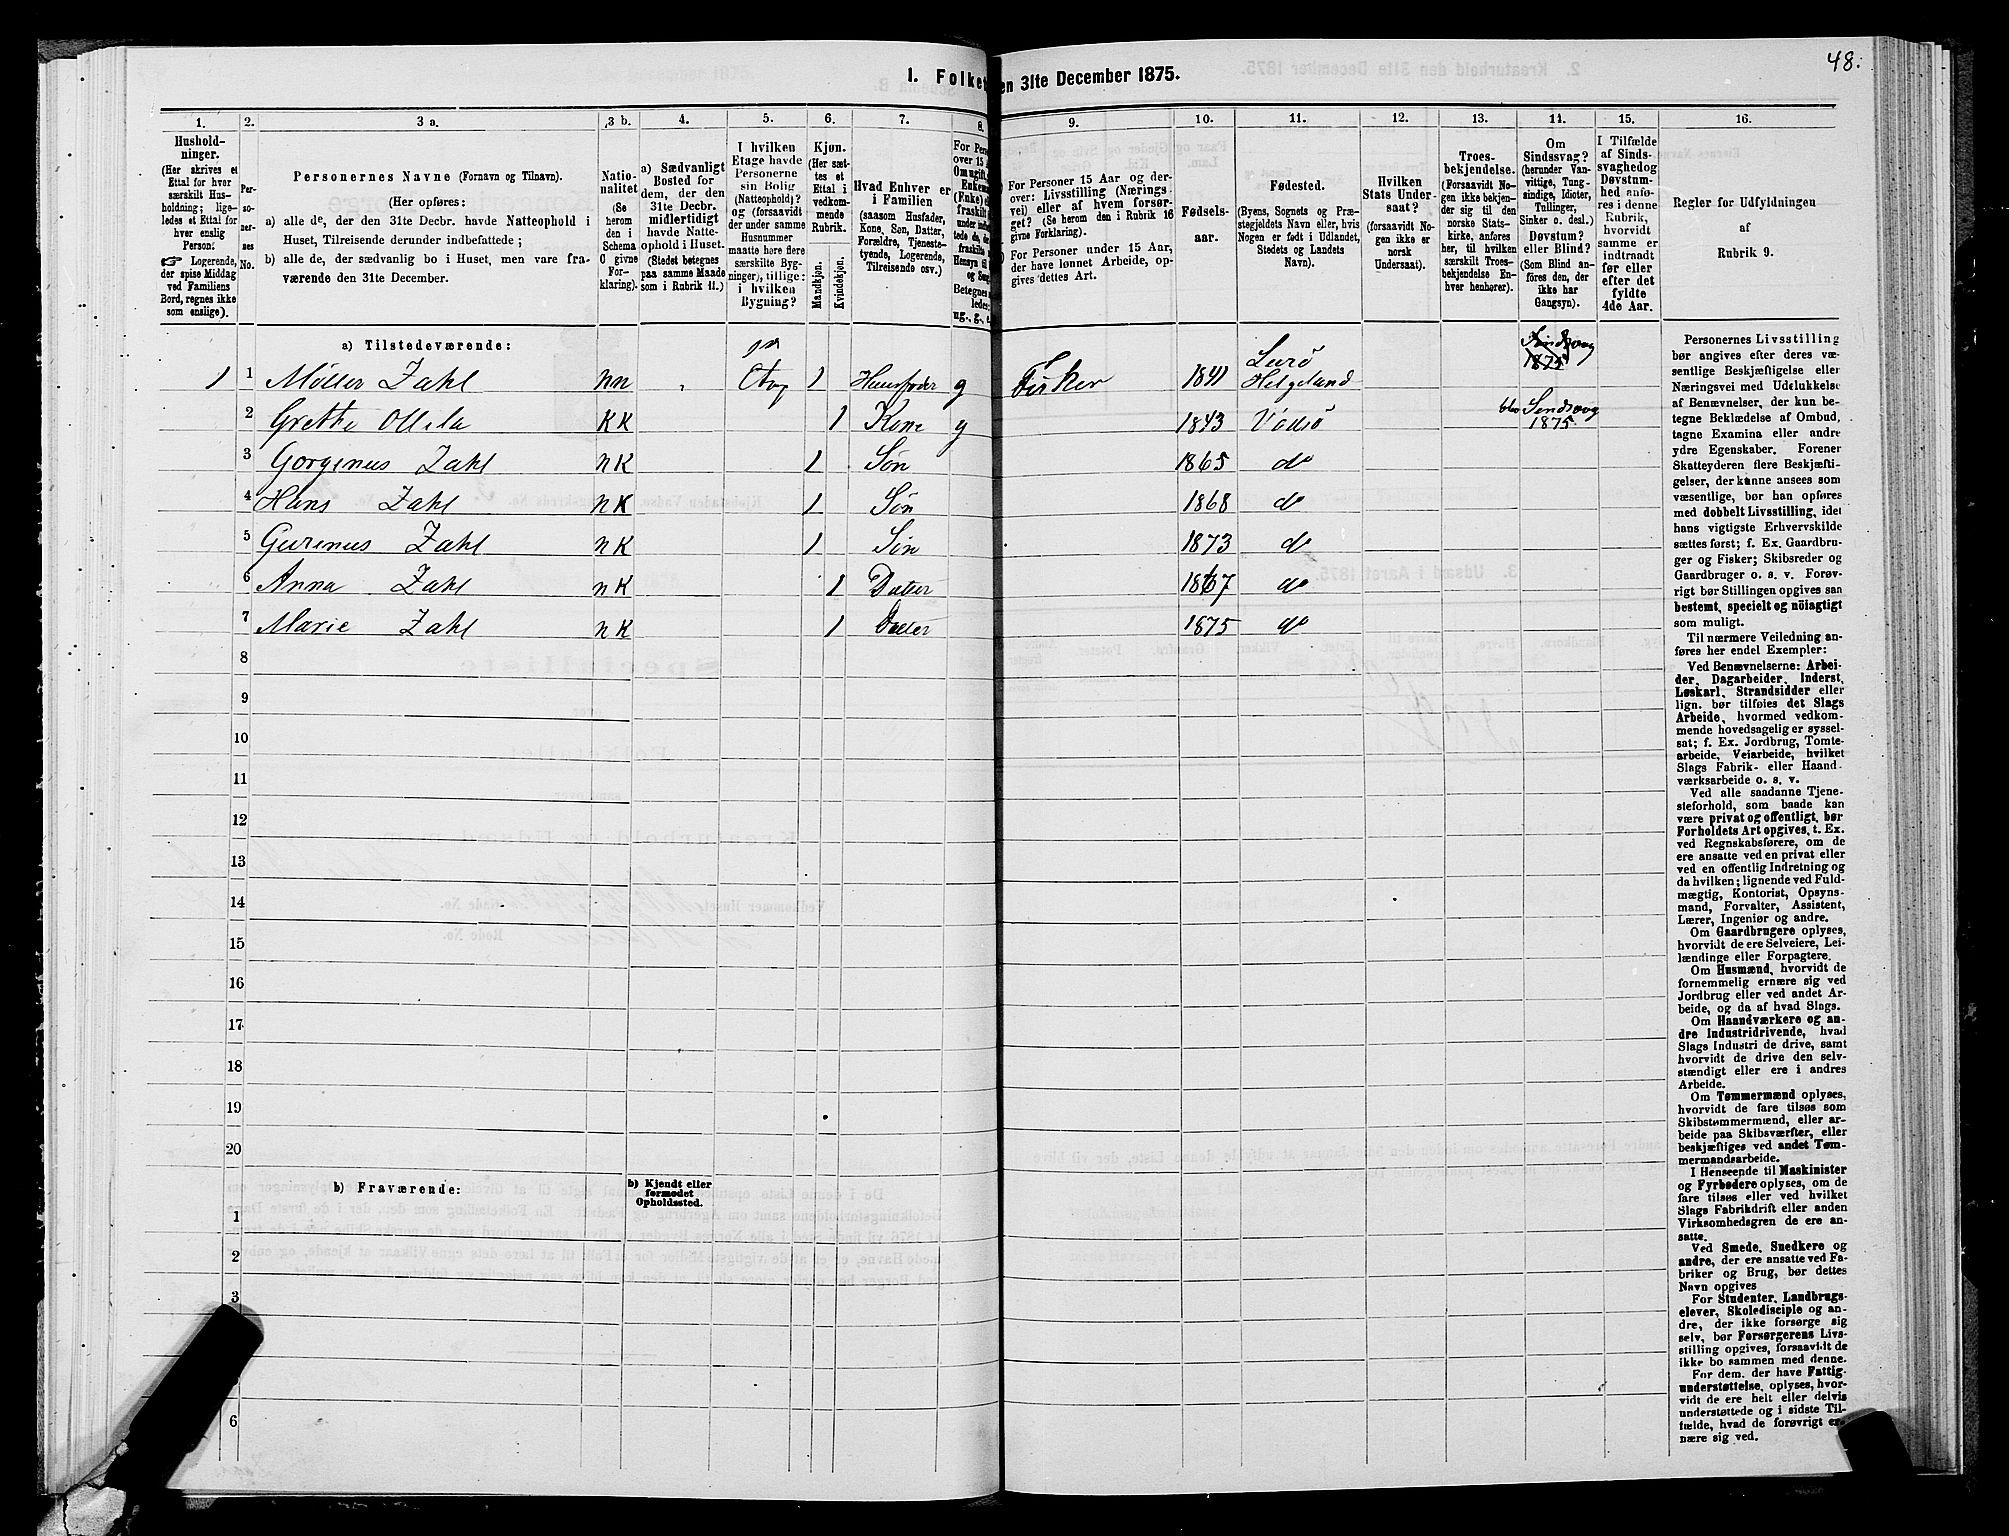 48.
1. Folket
en 31te December 1875.
1.
2.
3 a.
3 b.
4.
5.
6.
7.
8.
9.
10.
11.
12.
13.
14.
15.
16.
Hushold-
ninger.
(Her skrives et
Ettal for hver
særskilt Hus-
holdning; lige-
ledes et Ettal for
hver enslig
Person.
☞ Logerende,
der spise Middag
ved Familiens
Bord, regnes ikke
som enslige).
Per-
so-
ner-
nes
No.
Personernes Navne (Fornavn og Tilnavn).
(Her opføres:
a) alle de, der den 31te Decbr. havde Natteophold i
Huset, Tilreisende derunder indbefattede;
b) alle de, der sædvanlig bo i Huset, men vare fra-
værende den 31te December.
Natio-
nalitet
(Se
herom
den i
Schema
C givne
For-
klaring).
a) Sædvanligt
Bosted for
dem, der den
31te Decbr.
midlertidigt
havde Natte-
ophold i Huset.
(Stedet betegnes
paa samme Maade
som i Rubrik 11.)
I hvilken
Etage havde
Personerne
sin Bolig
(Natteophold)?
og (forsaavidt
der under samme
Husnummer
maatte høre flere
særskilte Byg-
ninger), tillige:
i hvilken
Bygning?
Kjøn.
(Her sæt-
tes et
Ettal i
vedkom-
mende
Rubrik.
Mandkjøn.
Kvindekjøn.
Hvad Enhver er
i Familien
(saasom Husfader,
Kone, Søn, Datter,
Forældre, Tjeneste-
tyende, Logerende,
Tilreisende osv.)
For Perso
over 15 A
Om ugift,
Enkema
(Enke) e
fraskilt
ug., g., e.
For Personer 15 Aar og der-
over: Livsstilling (Nærings-
vei) eller af hvem forsør-
get? (Se herom den i Rubrik 16
givne Forklaring).
For Personer under 15 Aar,
der have lønnet Arbeide, op-
gives dettes Art.
Fødsels-
aar.
Fødested.
(Byens, Sognets og Præ-
stegjeldets Navn eller, hvis
Nogen er født i Udlandet,
Stedets og Landets
Navn).
Hvilken
Stats Under-
saat?
(forsaavidt No-
gen ikke er
norsk
Undersaat).
Troes-
bekjendelse.
(Forsaavidt No-
gen ikke bekjen-
der sig til den
norske Stats-
kirke, anføres
her, til hvilken
særskilt Troes-
bekjendelse En-
hver henhører).
Om
Sindssvag?
(herunder Van-
vittige, Tung-
sindige, Idioter,
Tullinger,
Sinker o. desl.)
Døvstum?
eller Blind?
(Som Blind an-
føres den, der
ikke har
Gangsyn).
I Tilfælde
af Sinds-
svaghed og
Døvstum-
hed anfø-
res i denne
Rubrik,
hvorvidt
samme er
indtraadt
før eller
efter det
fyldte
4de Aar.
Regler for Udfyldningen
af
Rubrik 9.
a) Tilstedeværende:
1 1 Møller Zahl nn Etag 1 Huusfader g Fisker 1841 Lurö Helgeland Sindsvag 1875
2 Grethe Ollila KK 1 Kone g 1843 Vadsø blev Sindsvag 1875
3 Gorginus Zahl nK 1 Søn 1865 do
4 Hans Zahl nK 1 Søn 1868 do
5 Gurinus Zahl nK 1 Søn 1873 do
6 Anna Zahl nK 1 Datter 1867 do
7 Marie Zahl nK 1 Datter 1875 do
8
9
10
11
12
13
14
15
16
17
18
19
20
b) Fraværende:
b) Kjendt eller
formodet
Opholdssted.
1
2
3
6
Personernes Livsstilling
bør angives efter deres væ-
sentlige Beskjæftigelse eller
Næringsvei med Udelukkelse
af Benævnelser, der kun be-
tegne Beklædelse af Ombud,
tagne Examina eller andre
ydre Egenskaber. Forener
Skatteyderen flere Beskjæfti-
gelser, der kunne ansees som
væsentlige, bør han opføres
med dobbelt Livsstilling, idet
hans vigtigste Erhvervskilde
sættes først; f. Ex. Gaardbru-
ger og Fisker; Skibsreder og
Gaardbruger o. s. v. Forøv-
rigt bør Stillingen opgives saa
bestemt, specielt og nöiagtigt
som muligt.
Til nærmere Veiledning an-
føres her endel Exempler:
Ved Benævnelserne: Arbei-
der, Dagarbeider, Inderst,
Løskarl, Strandsidder eller
lign. bør tilføies det Slags
Arbeide, hvormed vedkom-
mende hovedsagelig er syssel-
sat; f. Ex. Jordbrug, Tomte-
arbeide, Veiarbeide, hvilket
Slags Fabrik- eller Haand-
værksarbeide o. s. v.
Ved alle saadanne Tjene-
steforhold, som baade kan
være privat og offentligt, bør
Forholdets Art opgives, t. Ex.
ved Regnskabsførere, om de
ere ansatte ved en privat eller
ved en offentlig Indretning og
da hvilken; lignende ved Fuld-
mægtig, Kontorist, Opsyns-
mand, Forvalter, Assistent,
Lærer, Ingeniør og andre.
Om Gaardbrugere oplyses,
hvorvidt de ere Selveiere, Lei-
lændinge eller Forpagtere.
Om Husmænd, hvorvidt de
fornemmelig ernære sig ved
Jordbrug eller ved andet Ar-
beide, og da af hvad Slags.
Om Haandværkere og an-
dre Industridrivende, hvad
Slags Industri de drive, samt
hvorvidt de drive den selv-
stændigt eller ere i andres
Arbeide.
Om Tømmermænd oplyses,
hvorvidt de fare tilsøs som
Skibstømmermænd, eller ar-
beide paa Skibsværfter, eller
beskjæftiges ved andet Tøm-
mermandsarbeide.
I Henseende til Maskinister
og Fyrbødere oplyses, om de
fare tilsøs eller ved hvilket
Slags Fabrikdrift eller anden
Virksomhedsgren de ere an-
satte.
Ved Smede, Snedkere og
andre, der ere ansatte ved Fa-
briker og Brug, bør dettes
Navn opgives
For Studenter, Landbrugs-
elever, Skoledisciple og an-
dre, der ikke forsørge sig
selv, bør Forsørgerens Livs-
stilling opgives, forsaavidt de
ikke bo sammen med denne.
For dem, der have Fattig-
understøttelse, oplyses, hvor-
vidt de ere helt eller delvis
understøttede og i sidste Til-
fælde, hvad de forøvrigt er-
nære sig ved.